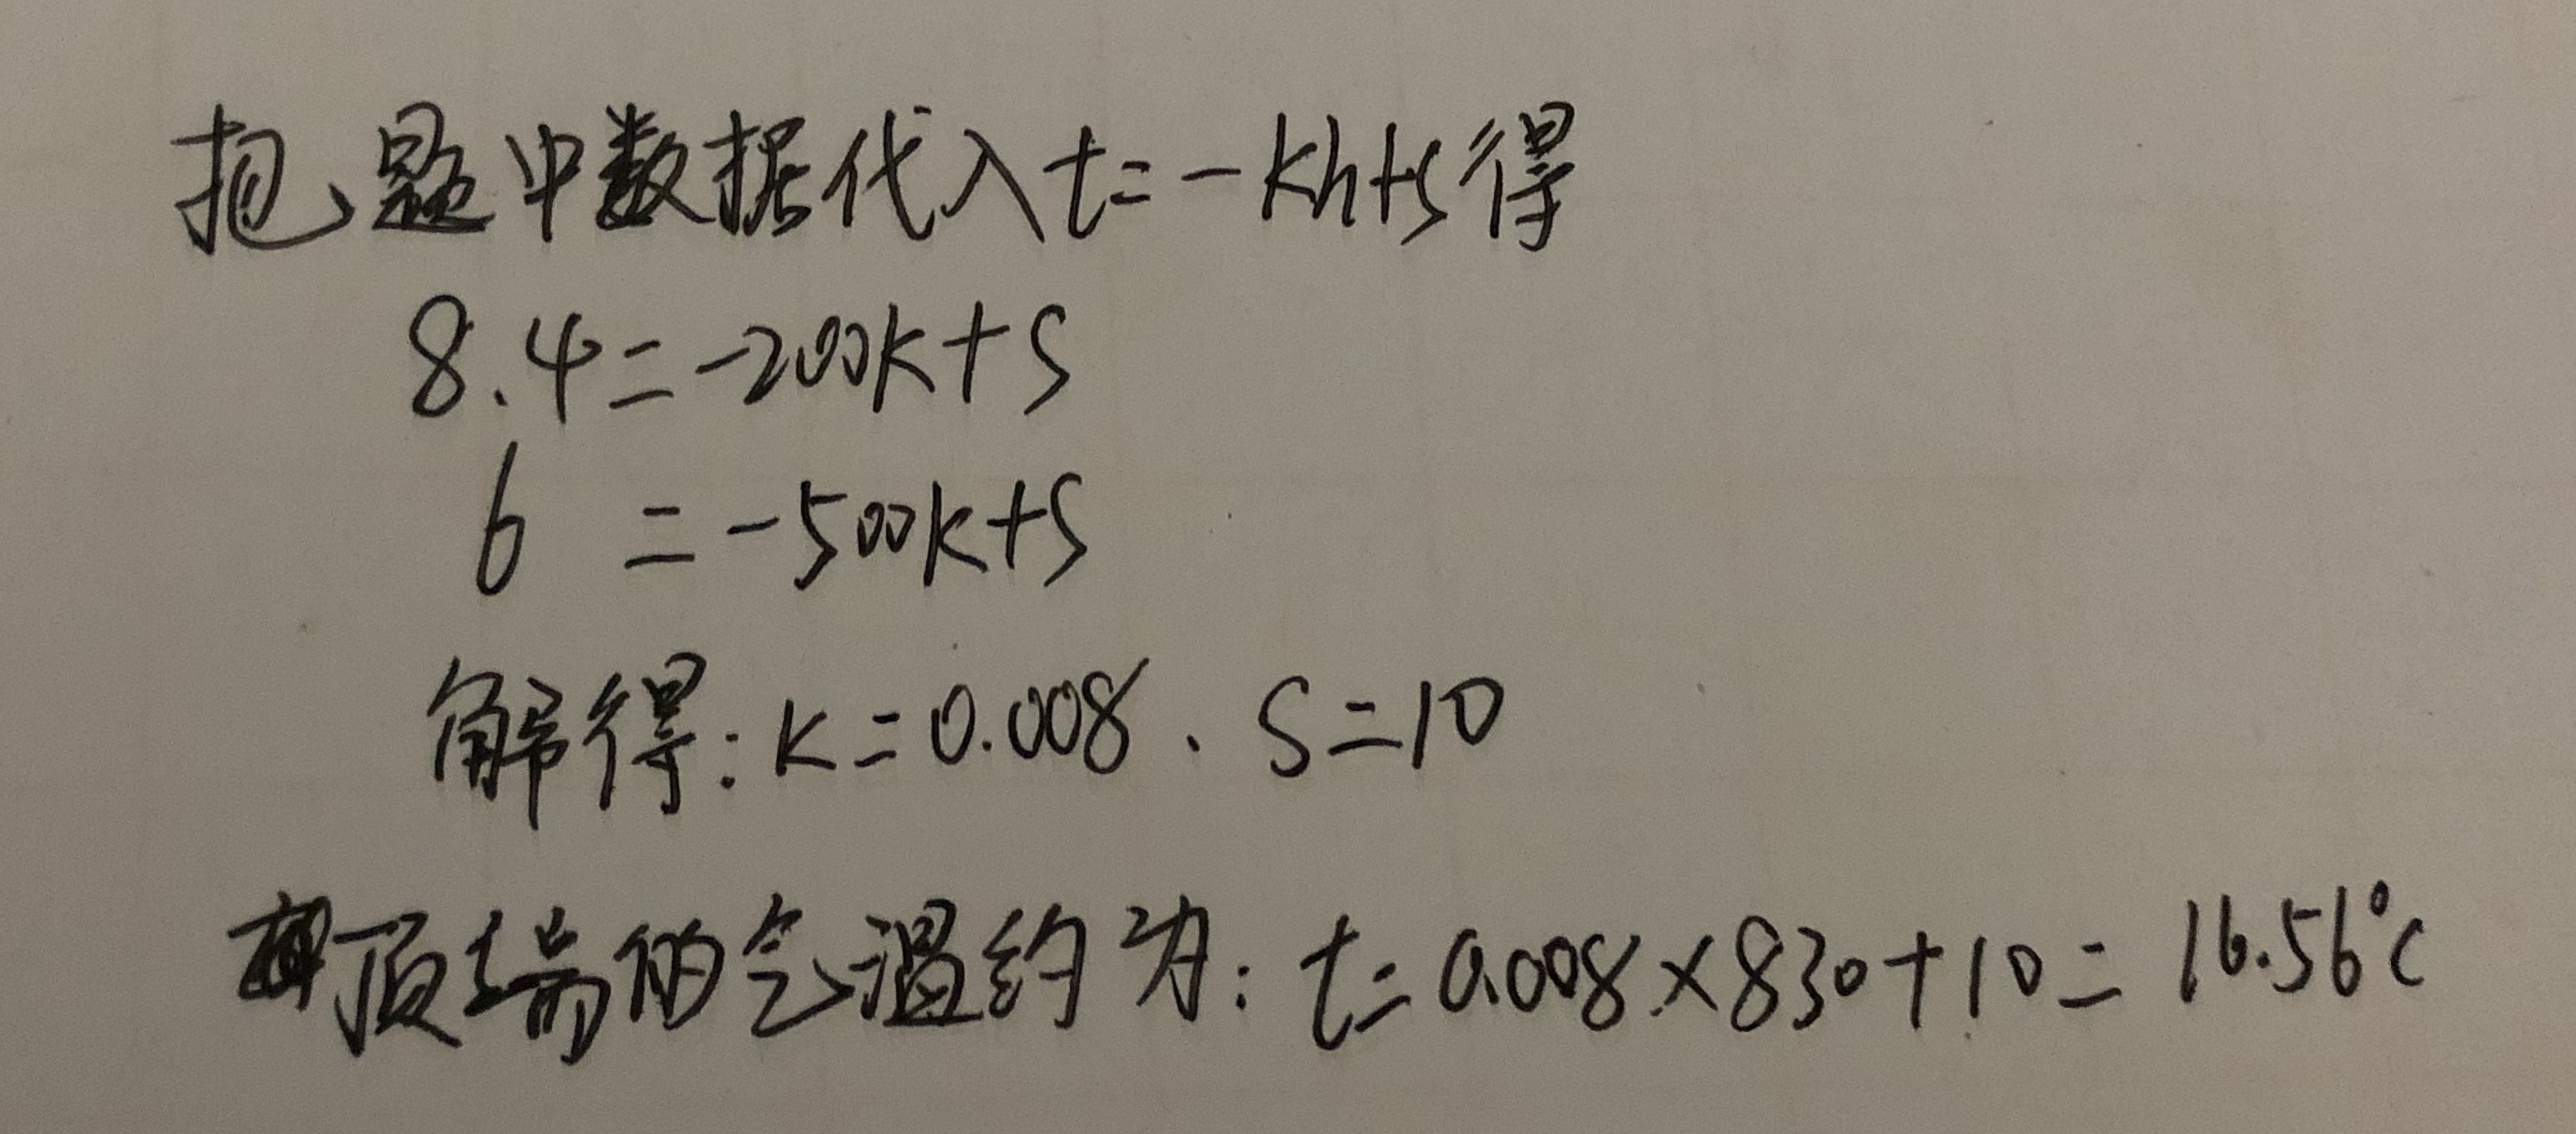 把题中数据代入t=-kh+s得
8.4=-200k+s
6 =-500k+s
解得:k=0.008、s=10
顶端的气温约为:t=0.008×830+10=16.56℃